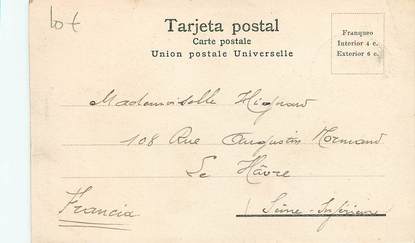 Tarjeta postal
Carte postale
Union postale Universelle
Franqueo
Interior 4 c.
Exterior 6 c.
Mademoiselle
108 Rue Augustin Normand
Le Hâvre
Francia
Seine-Inférieure